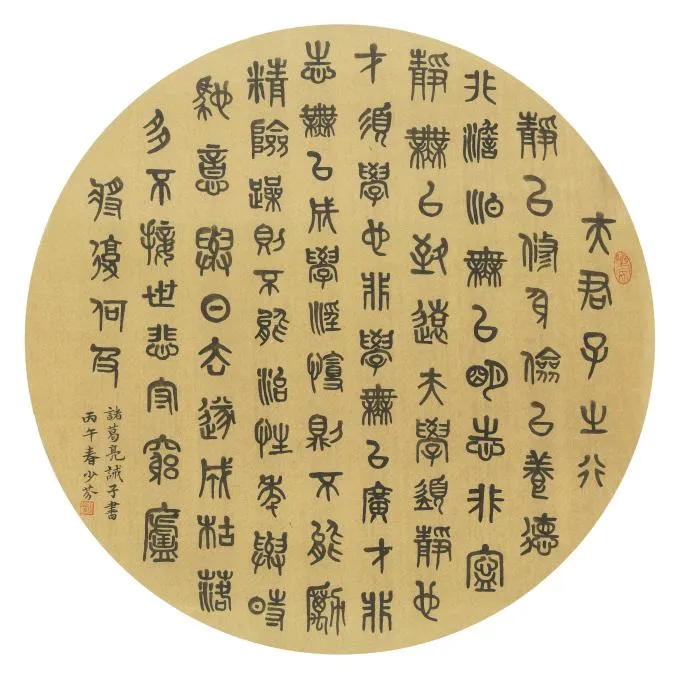 夫君子之行
靜以修身儉以養德
非澹泊無以明志非寧
靜無以致遠夫學須靜也
才須學也非學無以廣才非
志無以成學淫慢則不能勵
精險躁則不能治性年與時
馳意與日去遂成枯落
多不接世悲守窮廬
將復何及
諸葛亮誡子書
丙午春少芬